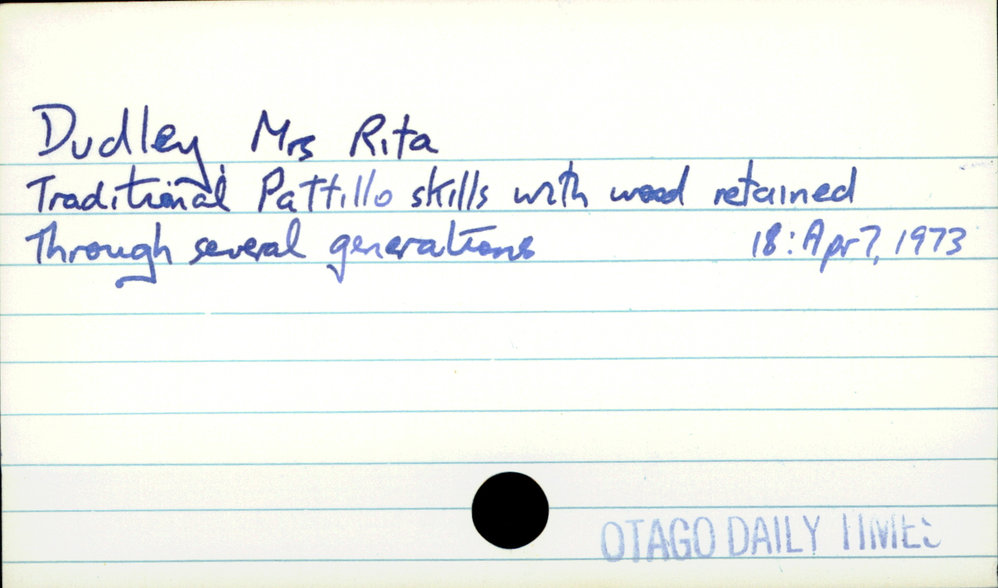 Dudley, Mrs Rita
Traditional Pattillo skills with wood retained
through several generations 18: Apr 7, 1973
OTAGO DAILY TIMES